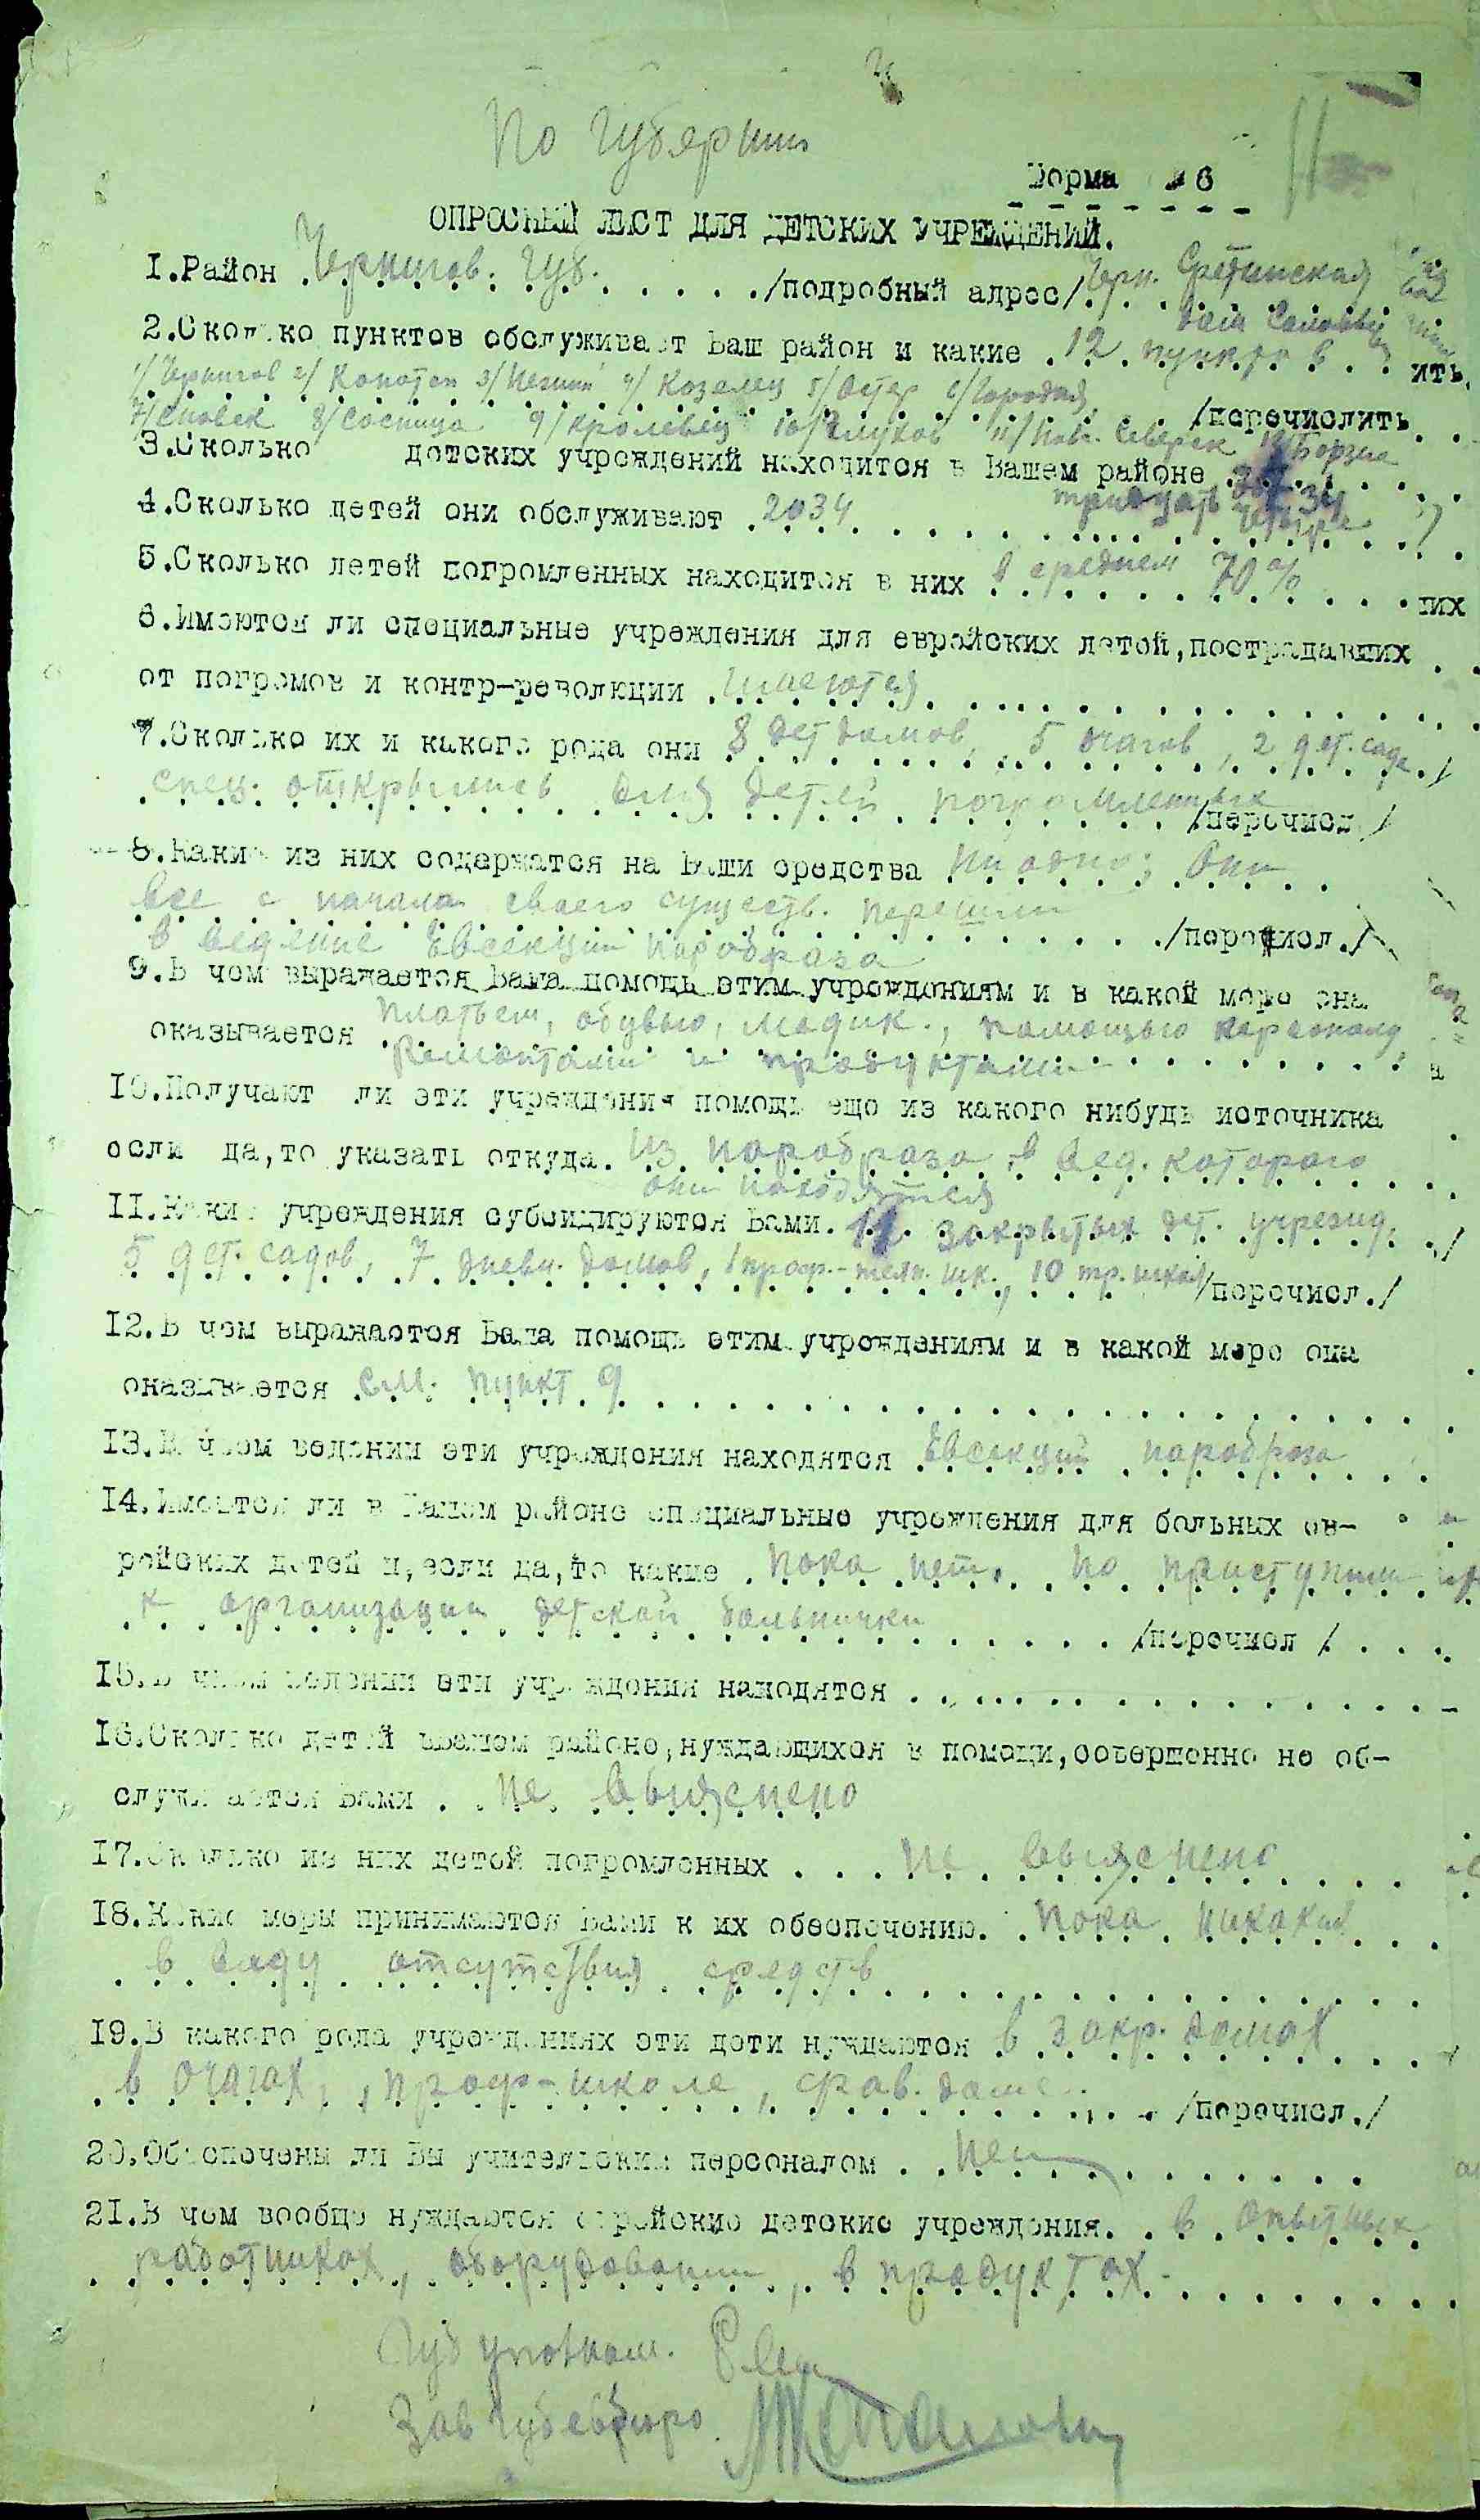 По Губернии
Форма № 6
ОПРОСНЫЙ ЛИСТ ДЛЯ ДЕТСКИХ УЧРЕЖДЕНИЙ.
1.Район Чернигов. Губ. /подробный адрес/ Черн. Сретинская
дом
2.Сколько пунктов обслуживает Ваш район и какие 12 пунктов
1/Чернигов 2/ Конотоп 3/Нежин 4/ Козелец 5/ Остер 6/Городня /перечислить
7/Сновск 8/Сосница 9/Кролевец 10/Глухов 11/Новг. Северск 12/Борзна
3.Сколько детских учреждений находится в Вашем районе 34
тридцать четыре
4.Сколько детей они обслуживают 2034
5.Сколько детей погромленных находится в них в среднем 70%
6.Имеются ли специальные учреждения для еврейских детей,пострадавших
от погромов и контр-революции имеются
7.Сколько их и какого рода они 8 детдомов, 5 очагов, 2 дет. сада
спец. открылись для детей погромленных /перечисл/
8.Какие из них содержатся на Ваши средства Ни одно; Они
все с начала своего существ. перешли /перечисл./
в ведение Евсекции наробраза
9.В чем выражается Ваша помощь этим учреждениям и в какой мере она
оказывается платьем, обувью, медик., помощью персоналу
Ремонтами и продуктами
10.Получают ли эти учреждения помощь еще из какого нибудь источника
если да,то указать откуда. Из наробраза, в вед. которого
они находятся
11.Какие учреждения субсидируются Вами. 11 закрытых дет. учрежд.
5 дет. садов, 7 дневн. домов, 1 проф.-техн. шк., 10 тр. школ /перечисл./
12.В чем выражается Ваша помощь этим учреждениям и в какой мере она
оказывается см. пункт 9
13.В чьем ведении эти учреждения находятся Евсекции наробраза
14.Имеются ли в Вашем районе специальные учреждения для больных ев-
рейских детей и,если да,то какие Пока нет, но приступили
к организации детской больнички /перечисл /
15.В чьем ведении эти учреждения находятся
16.Сколько детей вВашем районе,нуждающихся в помощи,совершенно не об-
служивается Вами не выяснено
17.Сколько из них детей погромленных не выяснено
18.Какие меры принимаются Вами к их обеспечению. Пока никаких
в виду отсутствия средств
19.В какого рода учреждениях эти дети нуждаются в закр. домах
в очагах, проф-школе, доме /перечисл./
20.Обеспечены ли Вы учительским персоналом Нет
21.В чем вообще нуждаются еврейские детские учреждения. в опытных
работниках, оборудовании, в продуктах.
Губ уполном.
Зав Губевбюро